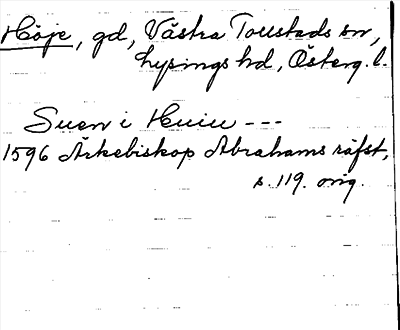 Höje, gd, Västra Tollstads sn,
Lysings hd, Österg. l.
Suen i Huiu ---
1596 Ärkebiskop Abrahams räfst,
s. 119. orig.